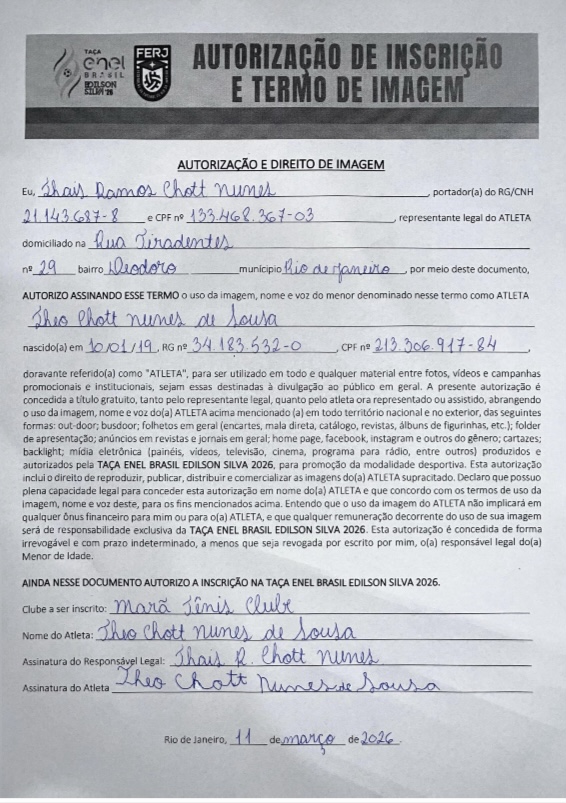 TAÇA
enel
BRASIL
EDILSON
SILVA 26
FERJ
AUTORIZAÇÃO DE INSCRIÇÃO
E TERMO DE IMAGEM
AUTORIZAÇÃO E DIREITO DE IMAGEM
Eu, Thais Ramos Chott Nunes, portador(a) do RG/CNH
21.143.687-8 e CPF nº 133.468.367-03, representante legal do ATLETA
domiciliado na Rua Tiradentes
nº 29 bairro Deodoro município Rio de janeiro, por meio deste documento,
AUTORIZO ASSINANDO ESSE TERMO o uso da imagem, nome e voz do menor denominado nesse termo como ATLETA
Theo Chott nunes de Sousa
nascido(a) em 10/01/19, RG nº 34.183.532-0, CPF nº 213.306.917-84,
doravante referido(a) como "ATLETA", para ser utilizado em todo e qualquer material entre fotos, vídeos e campanhas
promocionais e institucionais, sejam essas destinadas à divulgação ao público em geral. A presente autorização é
concedida a título gratuito, tanto pelo representante legal, quanto pelo atleta ora representado ou assistido, abrangendo
o uso da imagem, nome e voz do(a) ATLETA acima mencionado (a) em todo território nacional e no exterior, das seguintes
formas: out-door; busdoor; folhetos em geral (encartes, mala direta, catálogo, revistas, álbuns de figurinhas, etc.); folder
de apresentação; anúncios em revistas e jornais em geral; home page, facebook, instagram e outros do gênero; cartazes;
backlight; mídia eletrônica (painéis, vídeos, televisão, cinema, programa para rádio, entre outros) produzidos e
autorizados pela TAÇA ENEL BRASIL EDILSON SILVA 2026, para promoção da modalidade desportiva. Esta autorização
inclui o direito de reproduzir, publicar, distribuir e comercializar as imagens do(a) ATLETA supracitado. Declaro que possuo
plena capacidade legal para conceder esta autorização em nome do(a) ATLETA e que concordo com os termos de uso da
imagem, nome e voz deste, para os fins mencionados acima. Entendo que o uso da imagem do ATLETA não implicará em
qualquer ônus financeiro para mim ou para o(a) ATLETA, e que qualquer remuneração decorrente do uso de sua imagem
será de responsabilidade exclusiva da TAÇA ENEL BRASIL EDILSON SILVA 2026. Esta autorização é concedida de forma
irrevogável e com prazo indeterminado, a menos que seja revogada por escrito por mim, o(a) responsável legal do(a)
Menor de Idade.
AINDA NESSE DOCUMENTO AUTORIZO A INSCRIÇÃO NA TAÇA ENEL BRASIL EDILSON SILVA 2026.
Clube a ser inscrito: Marã Tênis Clube
Nome do Atleta: Theo Chott nunes de Sousa
Assinatura do Responsável Legal: Thais R. Chott Nunes
Assinatura do Atleta Theo Chott Nunes de Sousa
Rio de Janeiro, 11 de março de 2026.